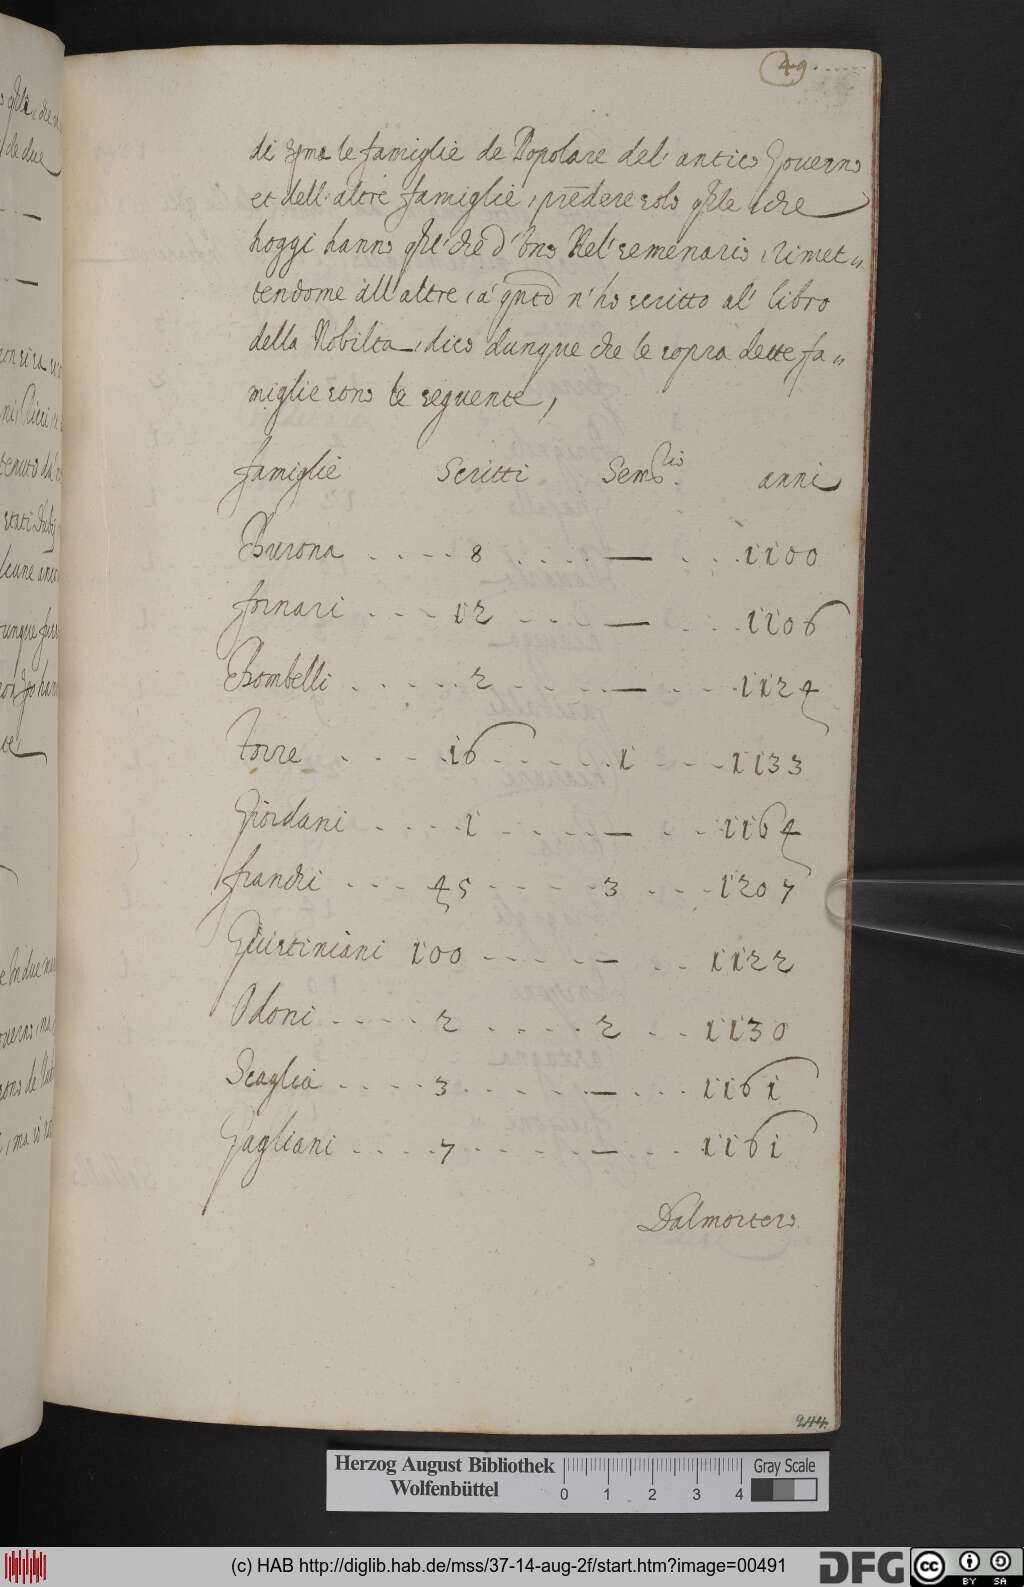 49
di pma le famiglie de Popolare del' antico Governo
et dell' altre famiglie, prēdere solo qlle, che
hoggi hanno qlc' che d' uno Nel' semenario, rimet„
tendome all' altre, a' qnto n' ho scritto al' libro
della Nobilta, dico dunque che le sopra dette fa„
miglie sono le seguente,
famiglie Scritti Semrio. anni
Burona . . . . 8 . . . . — . . . 1100
fornari . . . . 12 . . . . — . . . 1106
Bombelli . . . . 2 . . . . — . . . 1124
torre . . . . 16 . . . . 1 . . . 1133
Giordani . . . . 1 . . . . — . . . 1164
franchi . . . 45 . . . . 3 . . . 1207
Giustiniani 100 . . . . — . . 1122
Odoni . . . . 2 . . . . 2 . . 1130
Scaglia . . . . 3 . . . . — . . . 1161
Gagliani . . . . 7 . . . . — . . . 1161
Dalmortero
244.
Herzog August Bibliothek
Wolfenbüttel
0 1 2 3 4
Gray Scale
(c) HAB http://diglib.hab.de/mss/37-14-aug-2f/start.htm?image=00491
DFG
cc BY SA